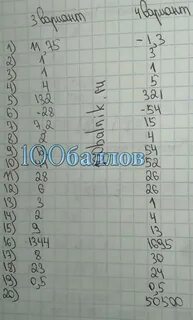 3 вариант 4 вариант
1) 11,75 -1,3
2) 1 3
3) 1 1
4) 4 5
5) 132 321
6) -28 -54
7) 7,2 15
8) 4
9) 54
10) 52
11) 28 26
12) 6 26
13) 3 1
14) 2 4
15) 9 13
16) 1344 1695
17) 8 30
18) 23 24
19) 0,5 0,5
20) 50500
100баллов
100balnik.ru